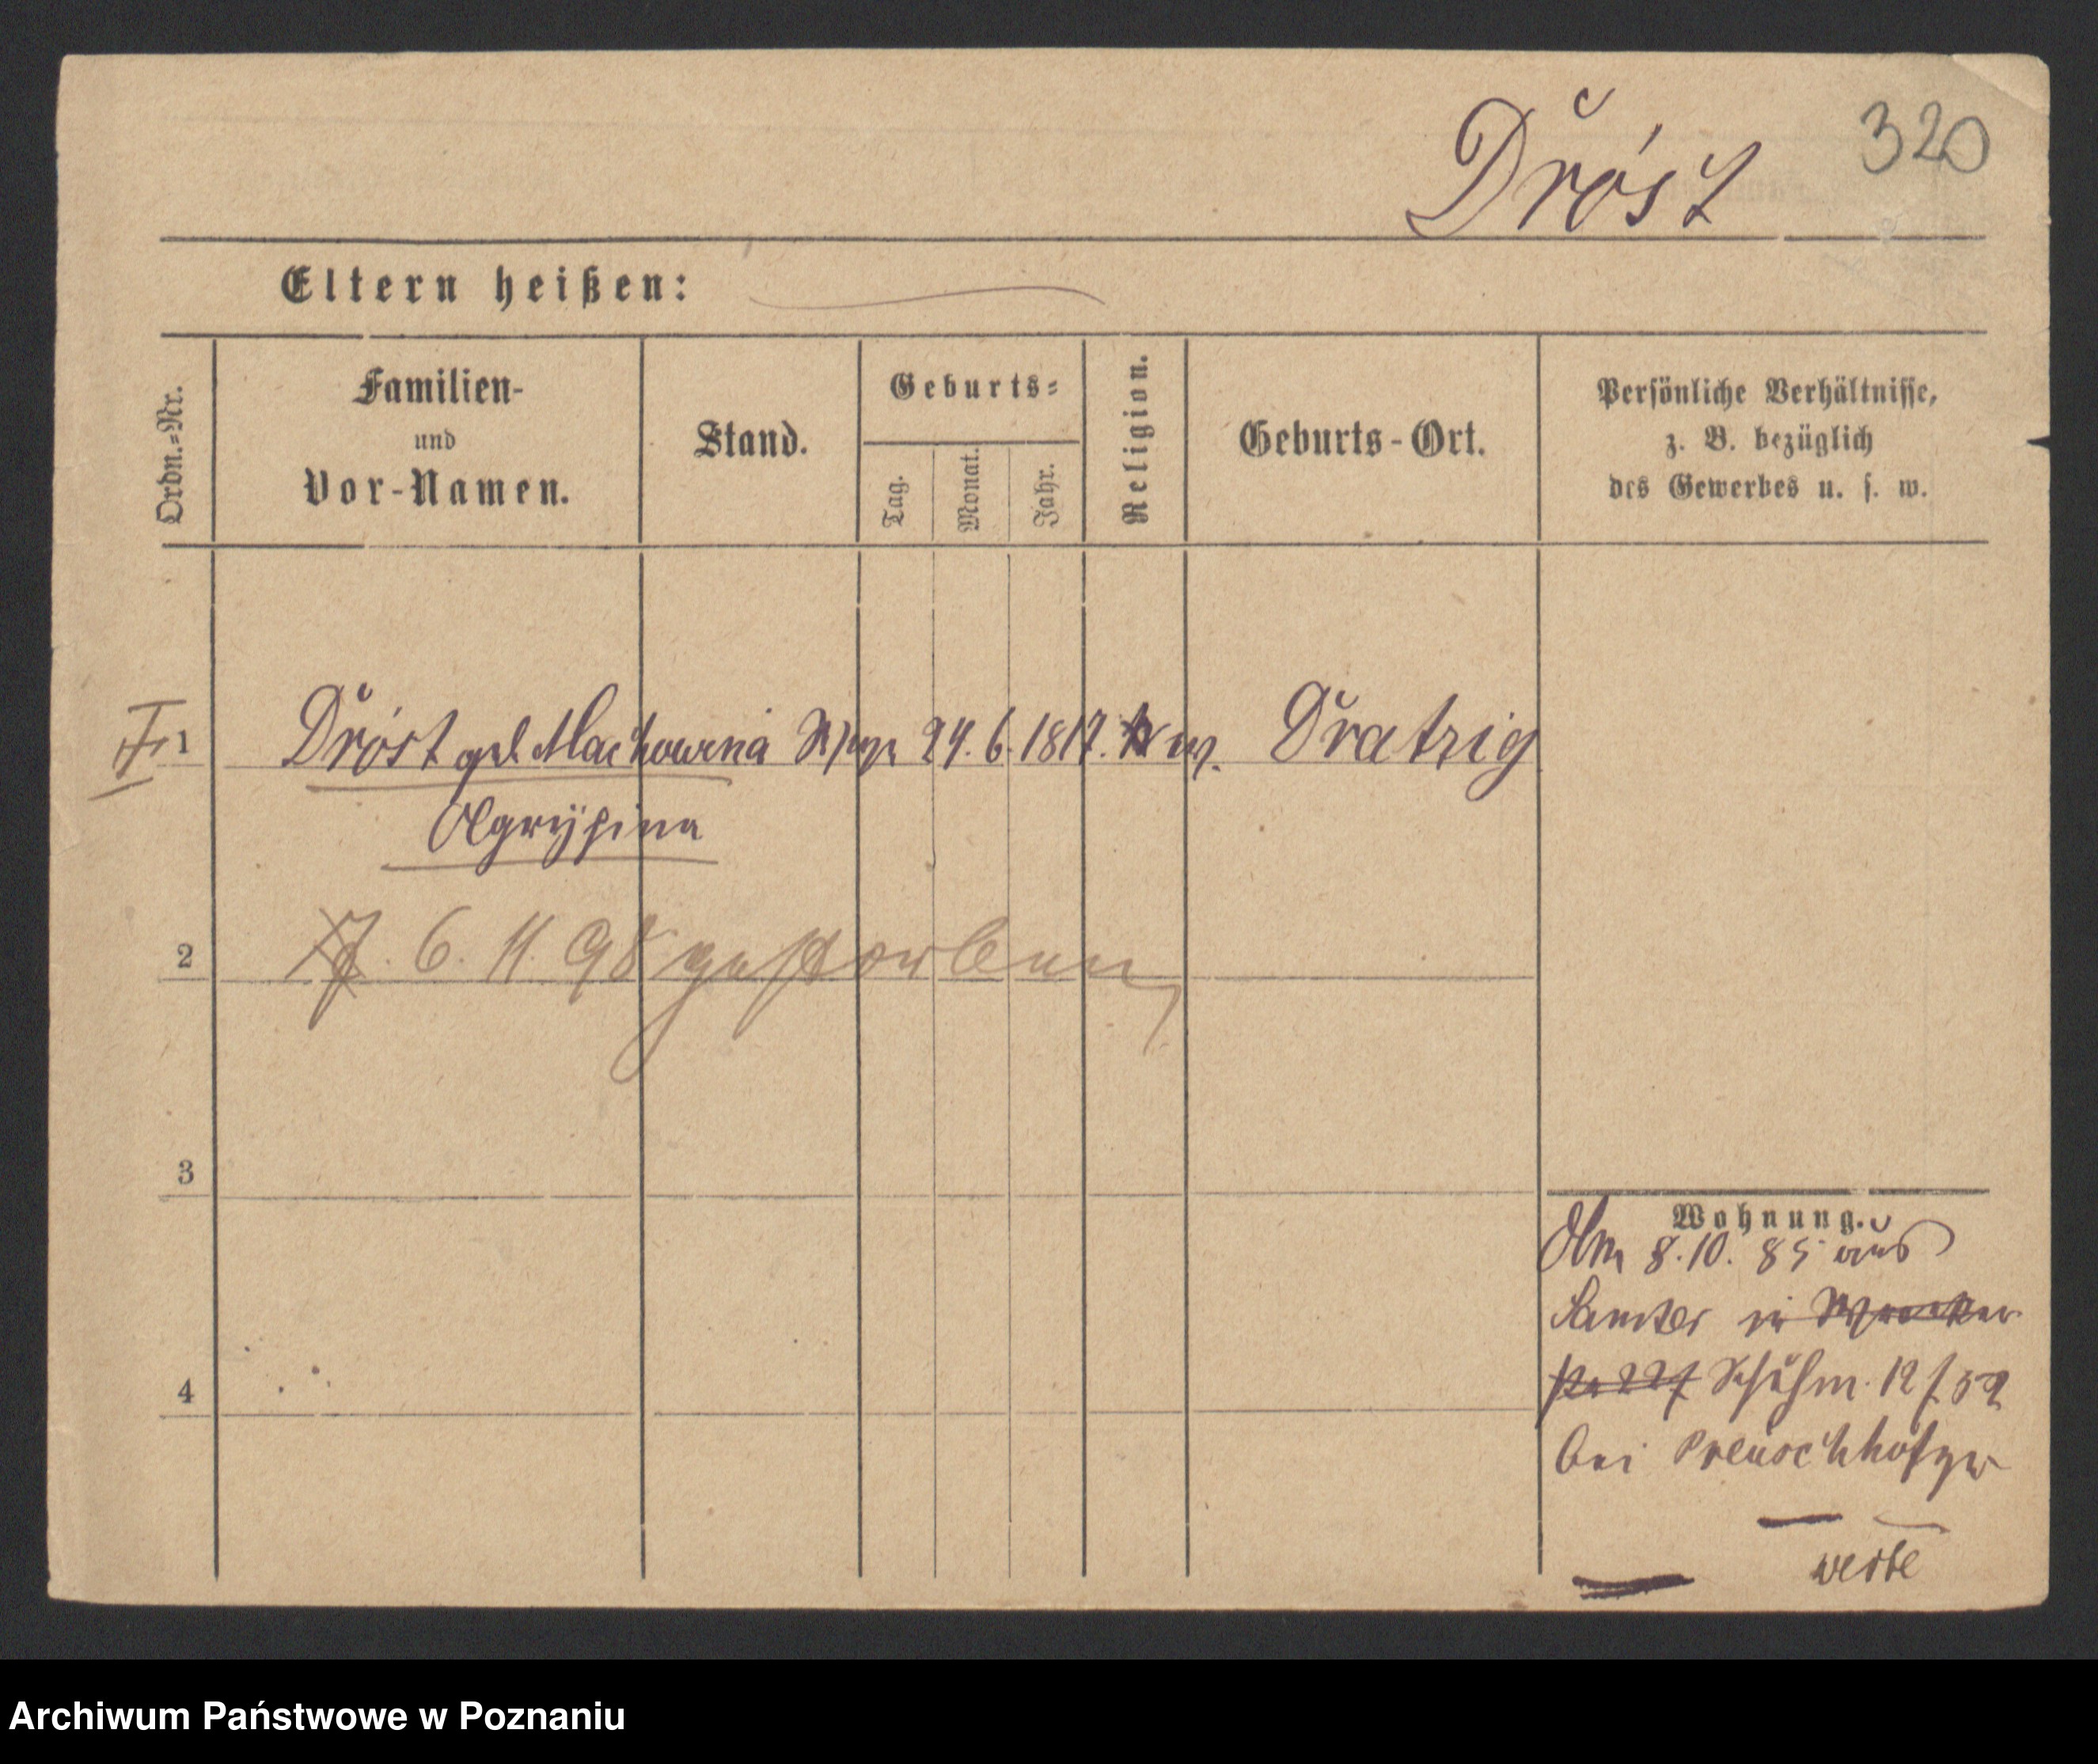 Dróst 320
Eltern heißen:
Ordn.=Nr.
Familien-
und
Vor-Namen.
Stand.
Geburts=
Tag.
Monat.
Jahr.
Religion.
Geburts-Ort.
Persönliche Verhältnisse,
z. B. bezüglich
des Gewerbes u. s. w.
1 Dróst geb. Machowina 24. 6. 1817. Dratzig
Agrypina
2 6. 11. 98 gestorben
3
4
Wohnung.
Am 8.10.85 aus
Samter in
Schuhm. 12 f. 52
bei Preuschhof
Archiwum Państwowe w Poznaniu